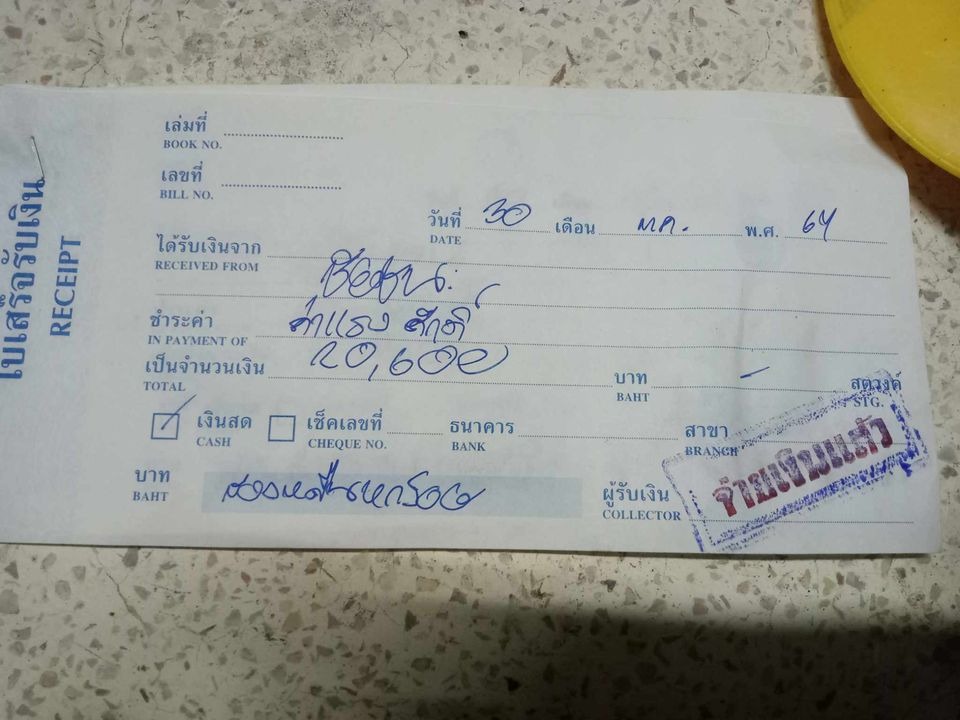 ใบเสร็จรับเงิน
RECEIPT
เล่มที่
BOOK NO.
เลขที่
BILL NO.
วันที่ 30 เดือน ต.ค. พ.ศ. 64
DATE
ได้รับเงินจาก
RECEIVED FROM
ชำระค่า ค่าแรง ศักดิ์
IN PAYMENT OF
เป็นจำนวนเงิน 20,600 บาท - สตางค์
TOTAL BAHT STG.
เงินสด เช็คเลขที่ ธนาคาร สาขา
CASH CHEQUE NO. BANK BRANCH
บาท สองหมื่นหกร้อย ผู้รับเงิน
BAHT COLLECTOR
จ่ายเงินแล้ว